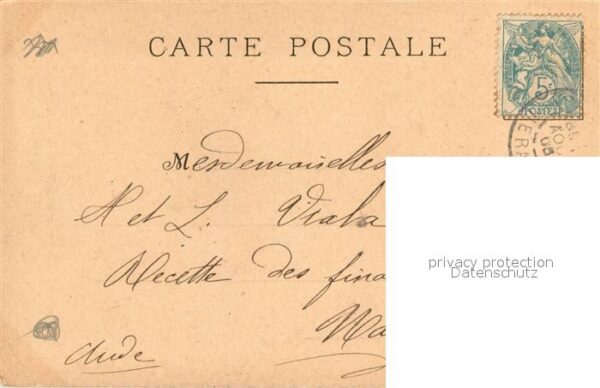 CARTE POSTALE
5
POSTES
Mesdemoiselles
H et L. Viala
Recette des fina
Na
Aude
privacy protection
Datenschutz